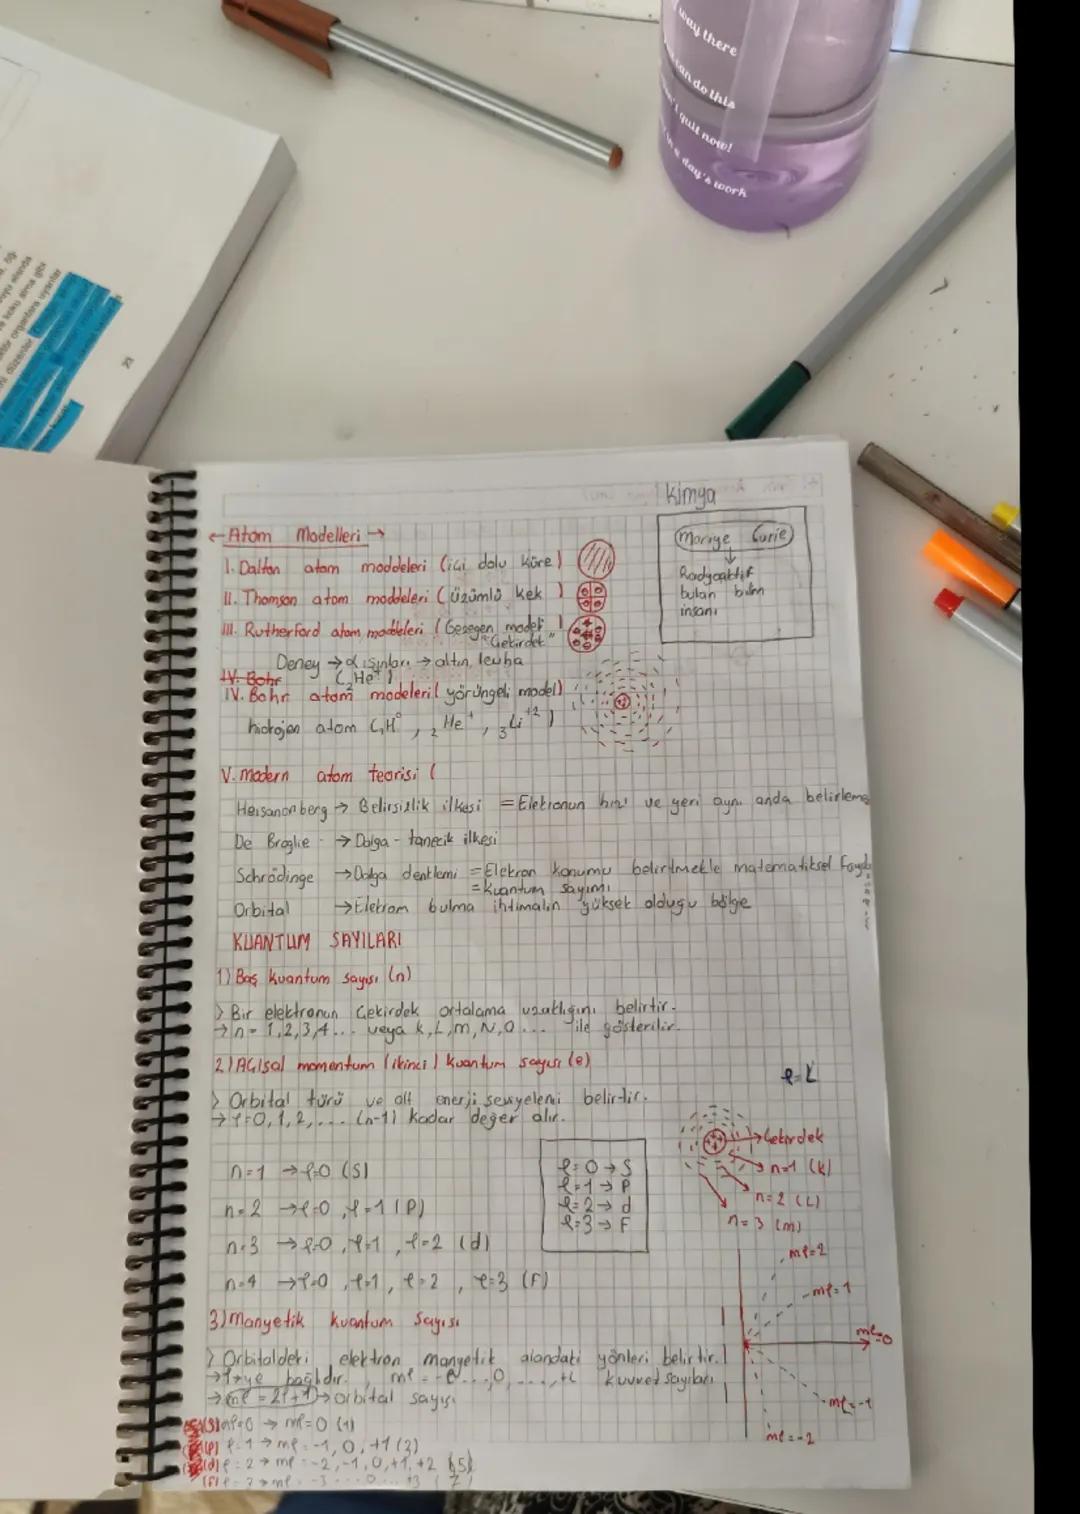 way there
can do this
quit now!
day's work
23
kimya
← Atom Modelleri →
I. Dalton atom moddeleri (içi dolu küre)
II. Thomson atom moddeleri (üzümlü kek)
III. Rutherford atom moddeleri (Gezegen model)
"Çekirdek"
Deney → α ışınları → altın, levha
IV. Bohr
IV. Bohr atom modeleri (yörüngeli model)
hidrojen atom
Mariye Curie
↓
Radyoaktif
bulan bilim
insanı
V. modern atom teorisi (
Heisanonberg → Belirsizlik ilkesi = Elektronun hızı ve yeri aynı anda belirleme
De Broglie → Dalga - tanecik ilkesi
Schrödinge → Dalga denklemi = Elektron konumu belirtmekle matematiksel
= kuantum sayımı
Orbital → Elektrom bulma ihtimalin yüksek olduğu bölge
KUANTUM SAYILARI
1) Baş kuantum sayısı (n)
> Bir elektronun çekirdek ortalama uzaklığını belirtir.
→ n = 1,2,3,4... veya k, L, m, N, O ... ile gösterilir.
2) Açısal momentum (ikinci) kuantum sayısı (e)
ℓ=L
> Orbital türü ve alt enerji seviyeleni belirtir.
→ ℓ=0,1,2,... (n-1) kadar değer alır.
n=1 → ℓ=0 (S)
n=2 → ℓ=0, ℓ=1 (P)
n=3 → ℓ=0, ℓ=1, ℓ=2 (d)
n=4 → ℓ=0, ℓ=1, ℓ=2, ℓ=3 (F)
ℓ=0 → S
ℓ=1 → P
ℓ=2 → d
ℓ=3 → F
→ Çekirdek
n=1 (k)
n=2 (L)
n=3 (m)
3) Manyetik kuantum sayısı
> Orbitaldeki elektron manyetik alandaki yönleri belirtir.
→ ℓ'ye bağlıdır. mℓ = -ℓ...0,...,+ℓ kuvvet sayıları
→ mℓ = 2ℓ+1 → orbital sayısı
(S) ℓ=0 → mℓ=0 (1)
(P) ℓ=1 → mℓ=-1, 0, +1 (3)
(d) ℓ=2 → mℓ=-2,-1,0,+1,+2 (5)
(F) ℓ=3 → mℓ=-3...0...+3 (7)
mℓ=2
mℓ=1
mℓ=0
mℓ=-1
mℓ=-2